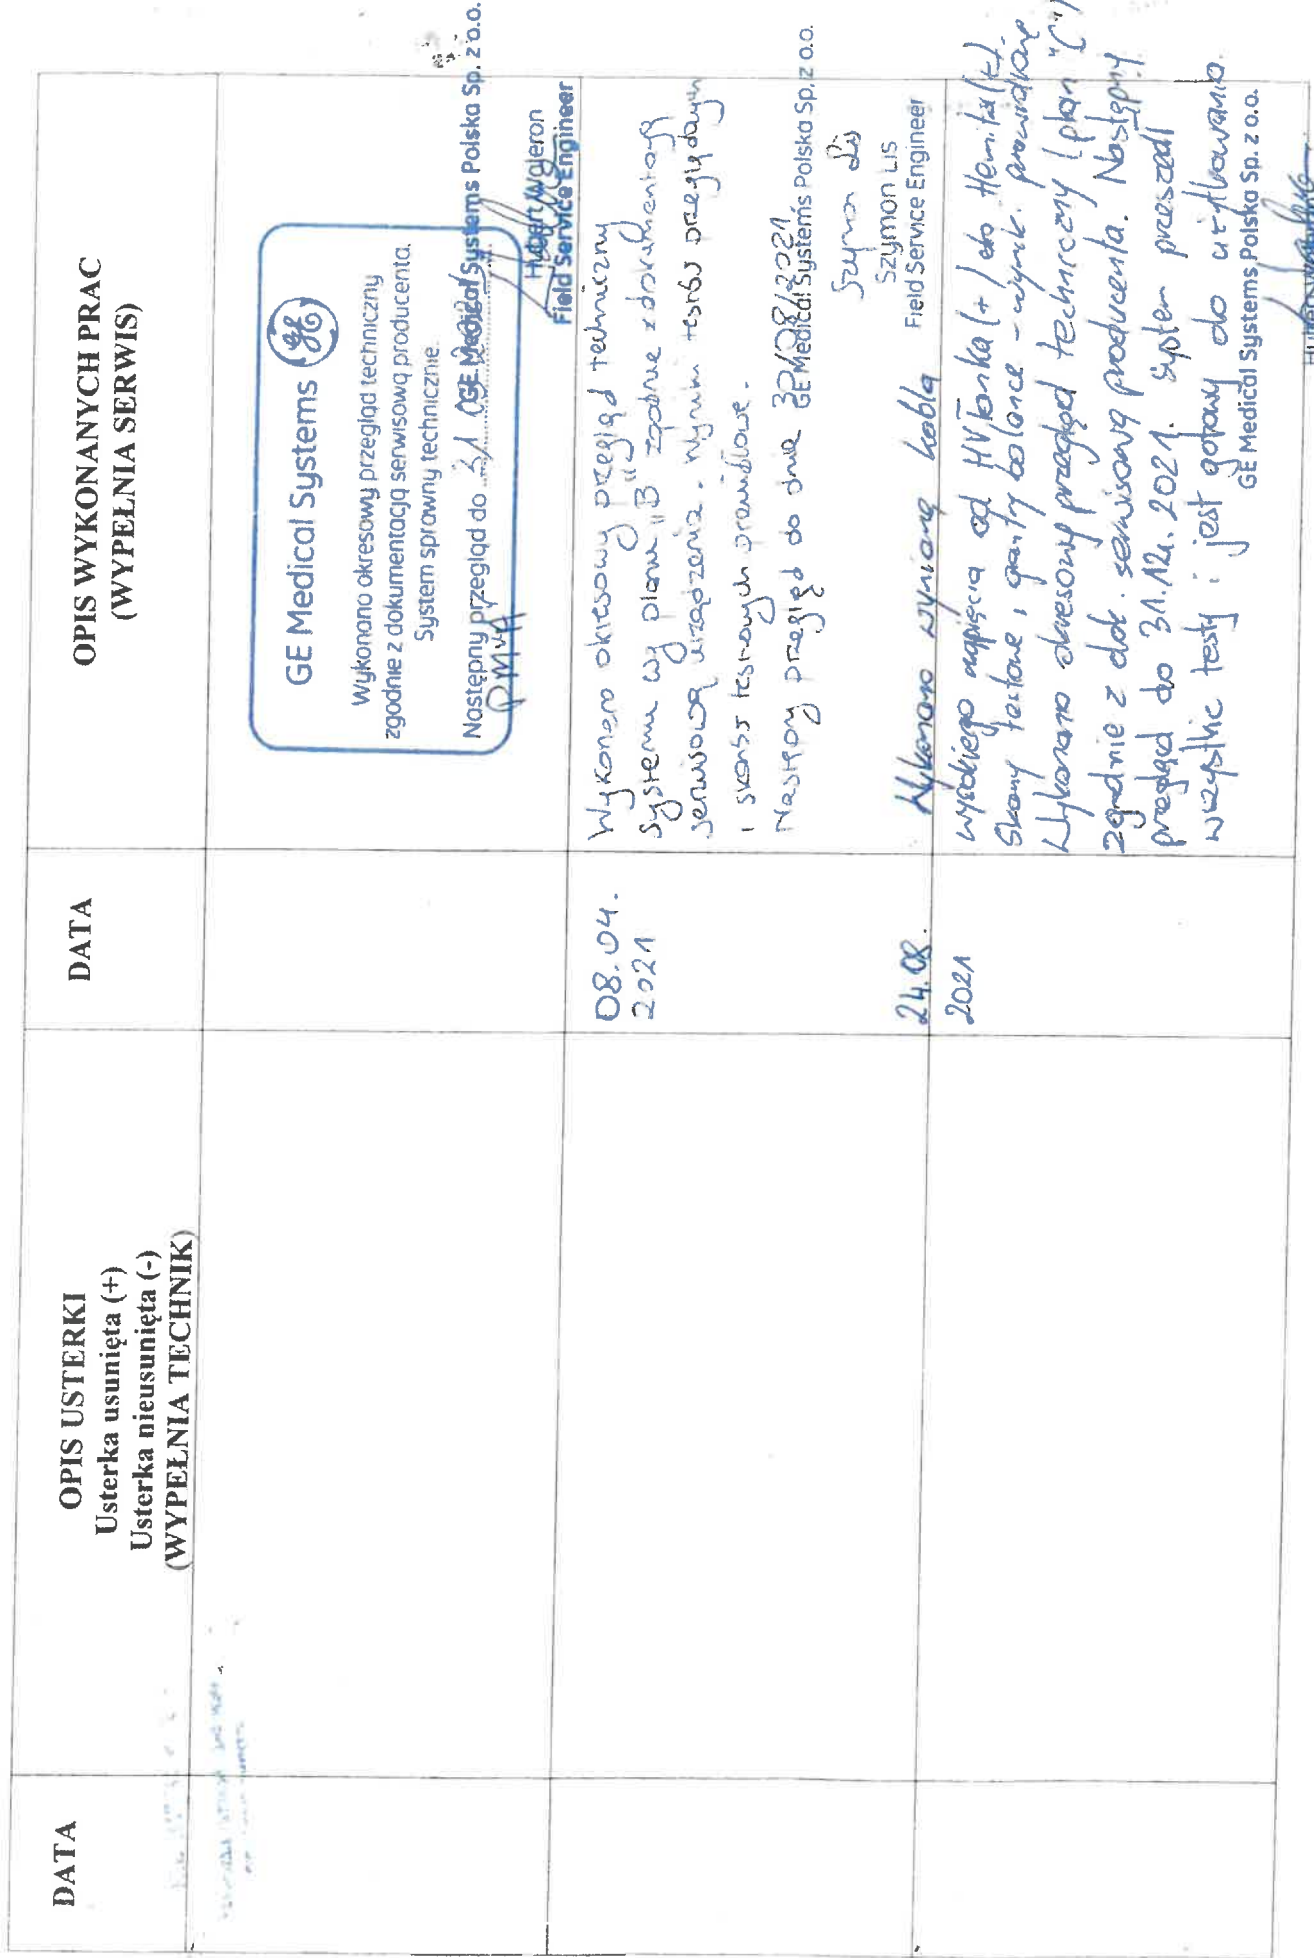 DATA
OPIS USTERKI
Usterka usunięta (+)
Usterka nieusunięta (-)
(WYPEŁNIA TECHNIK)
DATA
OPIS WYKONANYCH PRAC
(WYPEŁNIA SERWIS)
GE Medical Systems
Wykonano okresowy przegląd techniczny
zgodnie z dokumentacją serwisową producenta.
System sprawny technicznie.
Następny przegląd do 31
GE Medical Systems Polska Sp. z o.o.
Hubert Waleron
Field Service Engineer
08.04.
2021
Wykonano okresowy przegląd techniczny
systemu wg planu "B" zgodnie z dokumentacją
serwisową urządzenia. Wyniki testów przeglądowych
i skanów testowych prawidłowe.
Następny przegląd do dnia 31/08/2021
GE Medical Systems Polska Sp. z o.o.
Szymon Lis
Szymon Lis
Field Service Engineer
24.08.
2021
Wykonano wymianę kabla
wysokiego napięcia od HV Tanka (+) do
Skany testowe i balance - wynik. prawidłowe
Wykonano okresowy przegląd techniczny (plan "C")
zgodnie z dok. serwisową producenta. Następny
przegląd do 31.12r. 2021. System przeszedł
wszystkie testy i jest gotowy do użytkowania.
GE Medical Systems Polska Sp. z o.o.